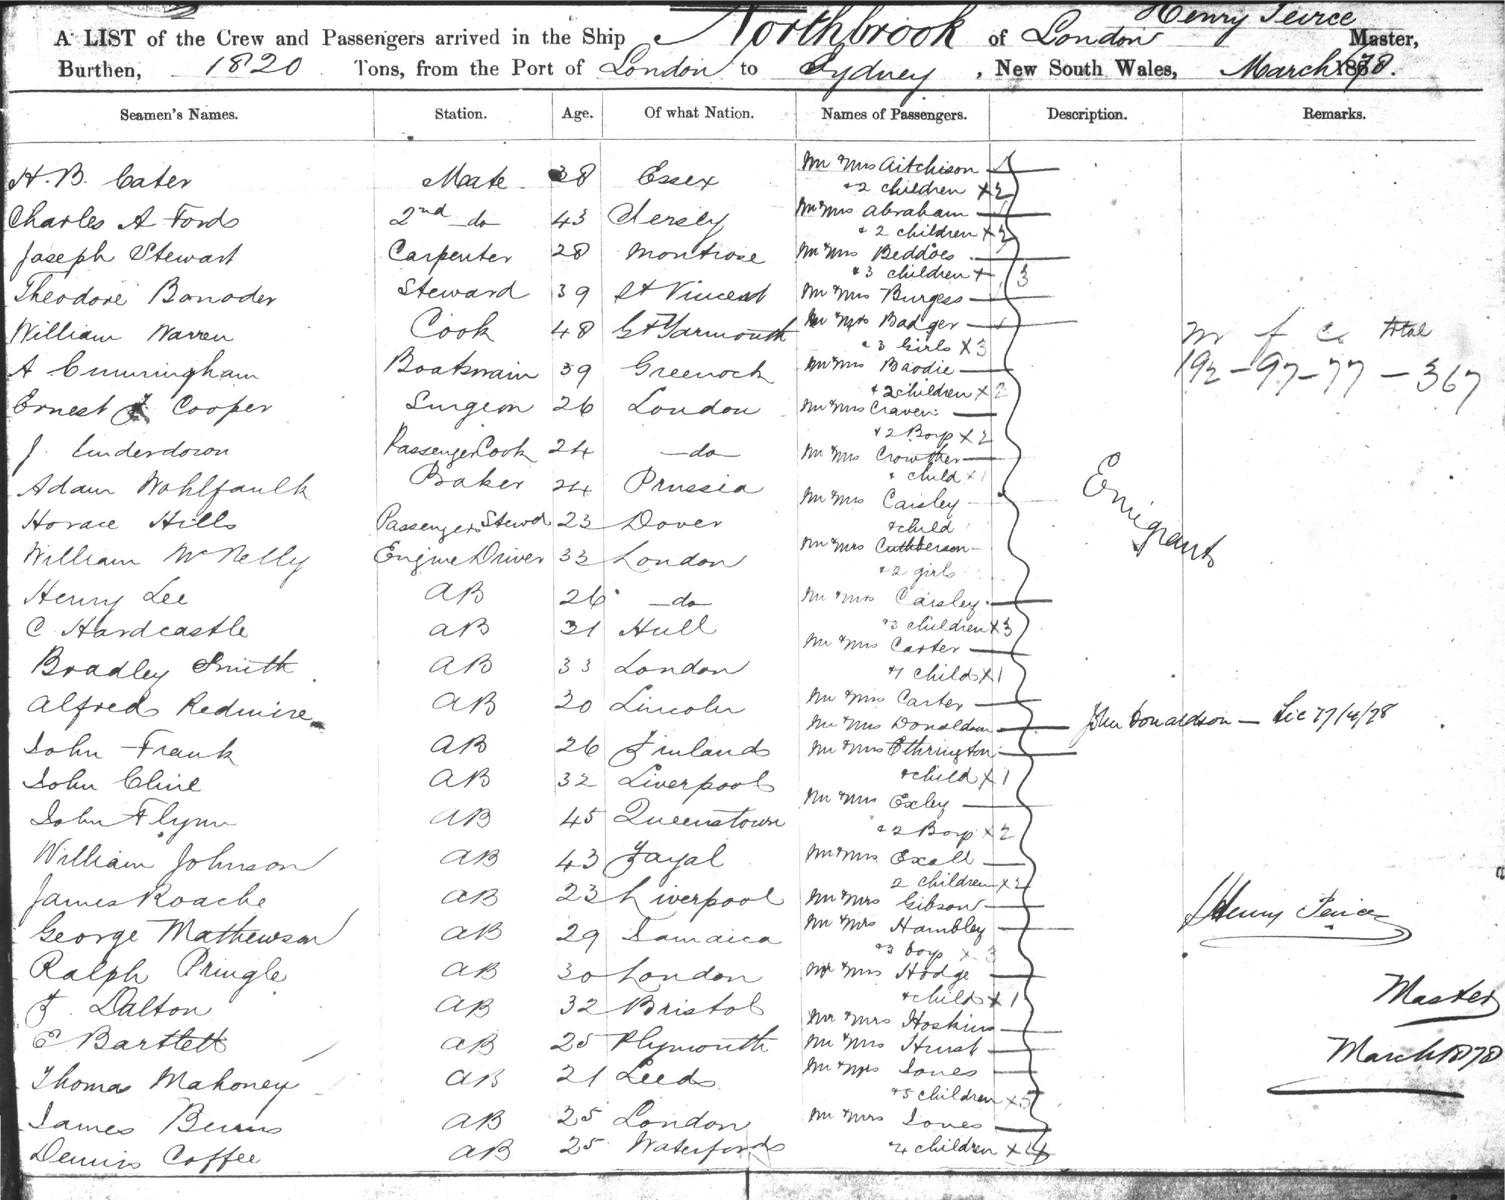 Henry Peirce
A LIST of the Crew and Passengers arrived in the Ship Northbrook of London Master,
Burthen, 1820 Tons, from the Port of London to Sydney, New South Wales, March 1878.
Seamen's Names. Station. Age. Of what Nation. Names of Passengers. Description. Remarks.
H. B. Cater Mate 38 Essex
Charles A Ford 2nd do 43 Jersey
Joseph Stewart Carpenter 28 Montrose
Theodore Steward 39 St Vincent
William Warren Cook 48 Gt Yarmouth
A Cunningham Boatswain 39 Greenock
Ernest F Cooper Surgeon 26 London
J. Underdown Passenger Cook 24 do
Adam Wohlfaulk Baker 24 Prussia
Horace Hills Passengers Stewd 23 Dover
William McNelly Engine Driver 33 London
Henry Lee AB 26 do
C Hardcastle AB 31 Hull
Bradley Smith AB 33 London
Alfred Redmire AB 20 Lincoln
John Frank AB 26 Finland
John Cline AB 32 Liverpool
John Flynn AB 45 Queenstown
William Johnson AB 43 Fayal
James Roache AB 23 Liverpool
George Mathewson AB 29 Jamaica
Ralph Pringle AB 30 London
F. Dalton AB 32 Bristol
E Bartlett AB 25 Plymouth
Thomas Mahoney AB 21 Leeds
James Burns AB 25 London
Dennis Coffee AB 25 Waterford
Mr & Mrs Aitchison
& 2 children x 2
Mr & Mrs Abraham
& 2 children x 2
Mr & Mrs Beddoes
& 3 children + 3
Mr & Mrs Burgess
Mr & Mrs Badger
& 3 Girls x 3
Mr & Mrs Baodie
& 2 children x 2
Mr & Mrs Craven
& 2 Boys x 2
Mr & Mrs Crowther
& child x 1
Mr & Mrs Caisley
& child
Mr & Mrs Cuthberson
& 2 girls
Mr & Mrs Caisley
& 3 children x 3
Mr & Mrs Carter
& 1 child x 1
Mr & Mrs Carter
Mr & Mrs Donaldson
Mr & Mrs Ethrington
& child x 1
Mr & Mrs Exley
& 2 Boys x 2
Mr & Mrs Exall
2 children x 2
Mr & Mrs Gibson
Mr & Mrs Hambley
& 3 boys x 3
Mr & Mrs Hodge
& child x 1
Mr & Mrs Hoskins
Mr & Mrs Hurst
Mr & Mrs Jones
& 5 children x 5
Mr & Mrs Jones
4 children x 4
Emigrants
John Donaldson
m f c total
192 - 97 - 77 - 367
Henry Peirce
Master
March 1878